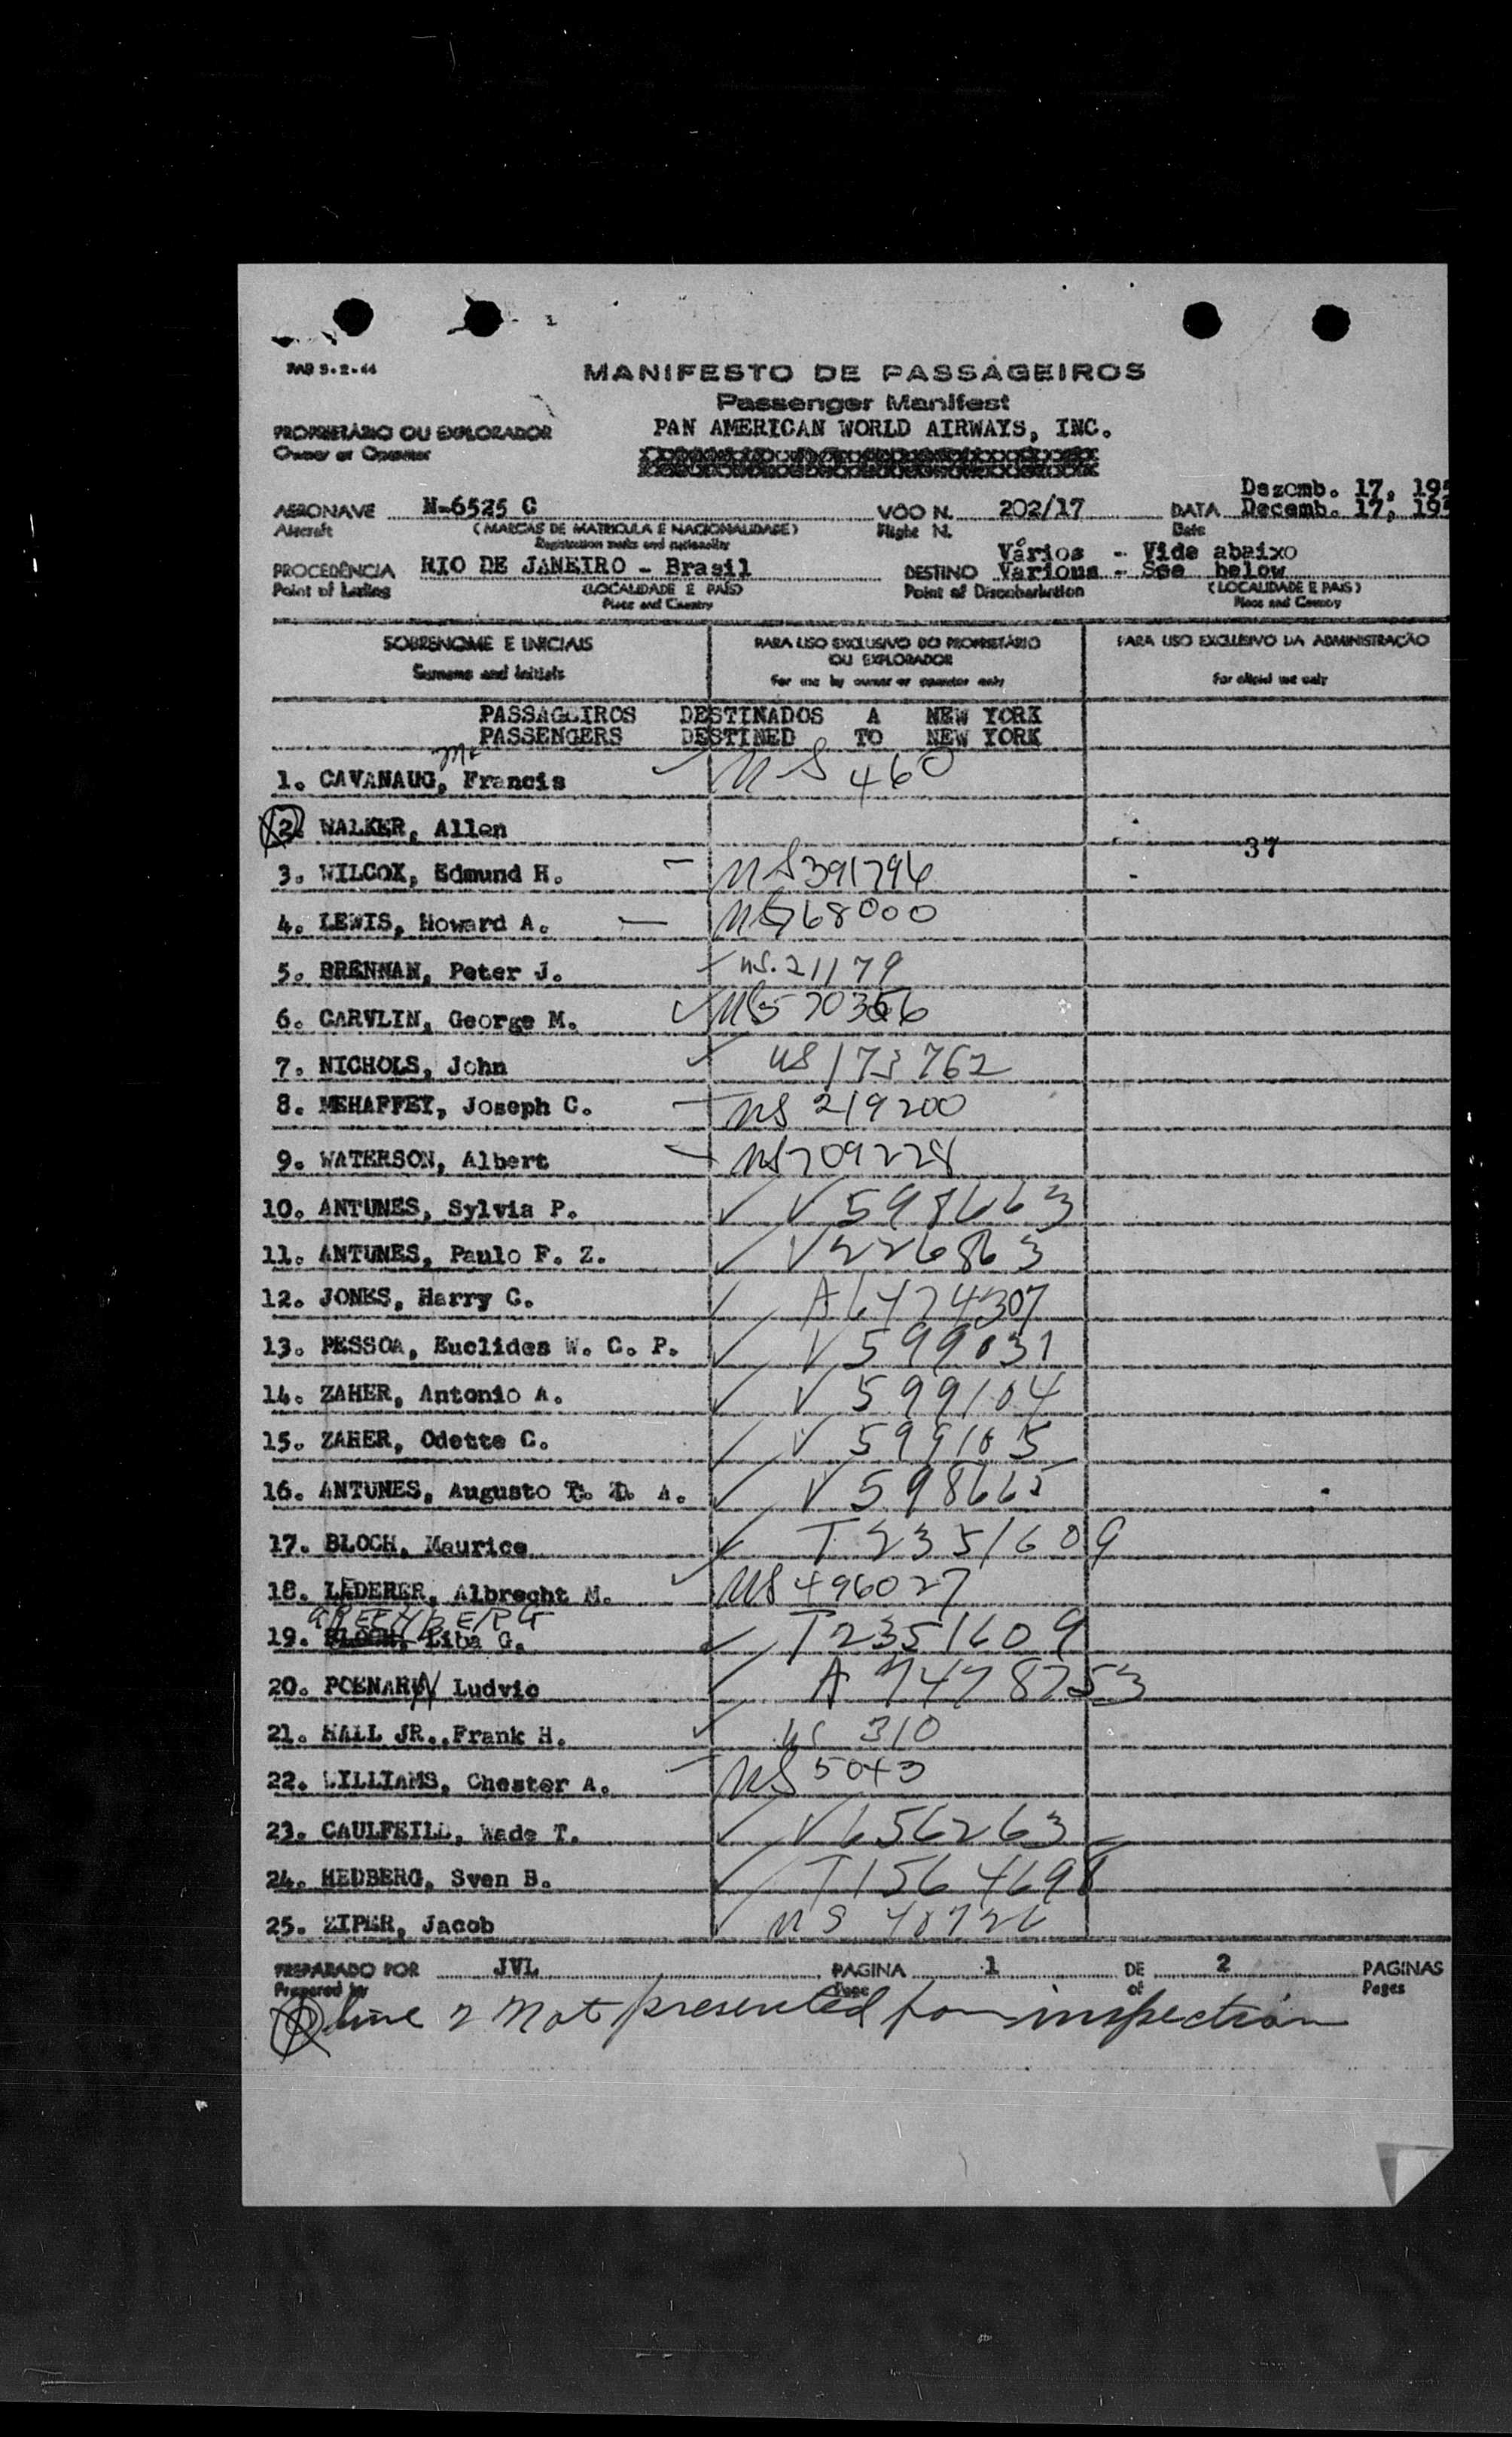 MANIFESTO DE PASSAGEIROS
Passenger Manifest
PROPRIETÁRIO OU EXPLORADOR PAN AMERICAN WORLD AIRWAYS, INC.
Owner or Operator
Dezemb. 17, 195
AERONAVE N-6525 C VOO N. 202/17 DATA Decemb. 17, 195
Aircraft (MARCAS DE MATRICULA E NACIONALIDADE) Flight N. Date
Registration marks and nationality
Vários - Vide abaixo
PROCEDÊNCIA RIO DE JANEIRO - Brasil DESTINO Various - See below
Point of Lading (LOCALIDADE E PAÍS) Point of Disembarkation (LOCALIDADE E PAÍS)
Place and Country Place and Country
SOBRENOME E INICIAIS PARA USO EXCLUSIVO DO PROPRIETÁRIO OU EXPLORADOR PARA USO EXCLUSIVO DA ADMINISTRAÇÃO
Surname and initials For use by owner or operator only For official use only
PASSAGEIROS DESTINADOS A NEW YORK
PASSENGERS DESTINED TO NEW YORK
1. CAVANAUG, Francis US 460
2. WALKER, Allen
37
3. WILCOX, Edmund H. US 391794
4. LEWIS, Howard A. US 768000
5. BRENNAN, Peter J. US. 21179
6. CARVLIN, George M. US 570366
7. NICHOLS, John US 173762
8. MEHAFFEY, Joseph C. US 219200
9. WATERSON, Albert US 209228
10. ANTUNES, Sylvia P. V 598663
11. ANTUNES, Paulo F. Z. V 226863
12. JONES, Harry C. A6474307
13. PESSOA, Euclides W. C. P. V 599031
14. ZAHER, Antonio A. V 599104
15. ZAHER, Odette C. V 599105
16. ANTUNES, Augusto T. A. V 598665
17. BLOCH, Maurice T 2351609
18. LEDERER, Albrecht M. US 496027
GREENBERG
19. BLOCH, Liba G. T2351609
20. POENARU Ludvic A 7478753
21. HALL JR., Frank H. US 310
22. WILLIAMS, Chester A. US 5043
23. CAULFEILD, Wade T. V 656263
24. HEDBERG, Sven B. T1564698
25. ZIPER, Jacob US 40726
PREPARADO POR JVL PAGINA 1 DE 2 PAGINAS
Prepared by Page of Pages
Line 2 Not presented for inspection